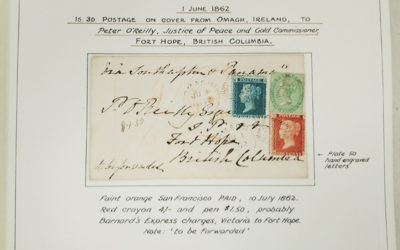 1 JUNE 1862
1s.3D. POSTAGE ON COVER FROM OMAGH, IRELAND, TO
PETER O'REILLY, JUSTICE OF PEACE AND GOLD COMMISSIONER,
FORT HOPE, BRITISH COLUMBIA.
via Southampton & Panama
P. O'Reilly
J.P.
Fort Hope
British Columbia
to be forwarded
Plate 50
hand engraved
letters
Faint orange San Francisco PAID, 10 July 1862.
Red crayon 4/- and pen $1.50, probably
Barnard's Express charges, Victoria to Fort Hope.
Note: 'to be forwarded'